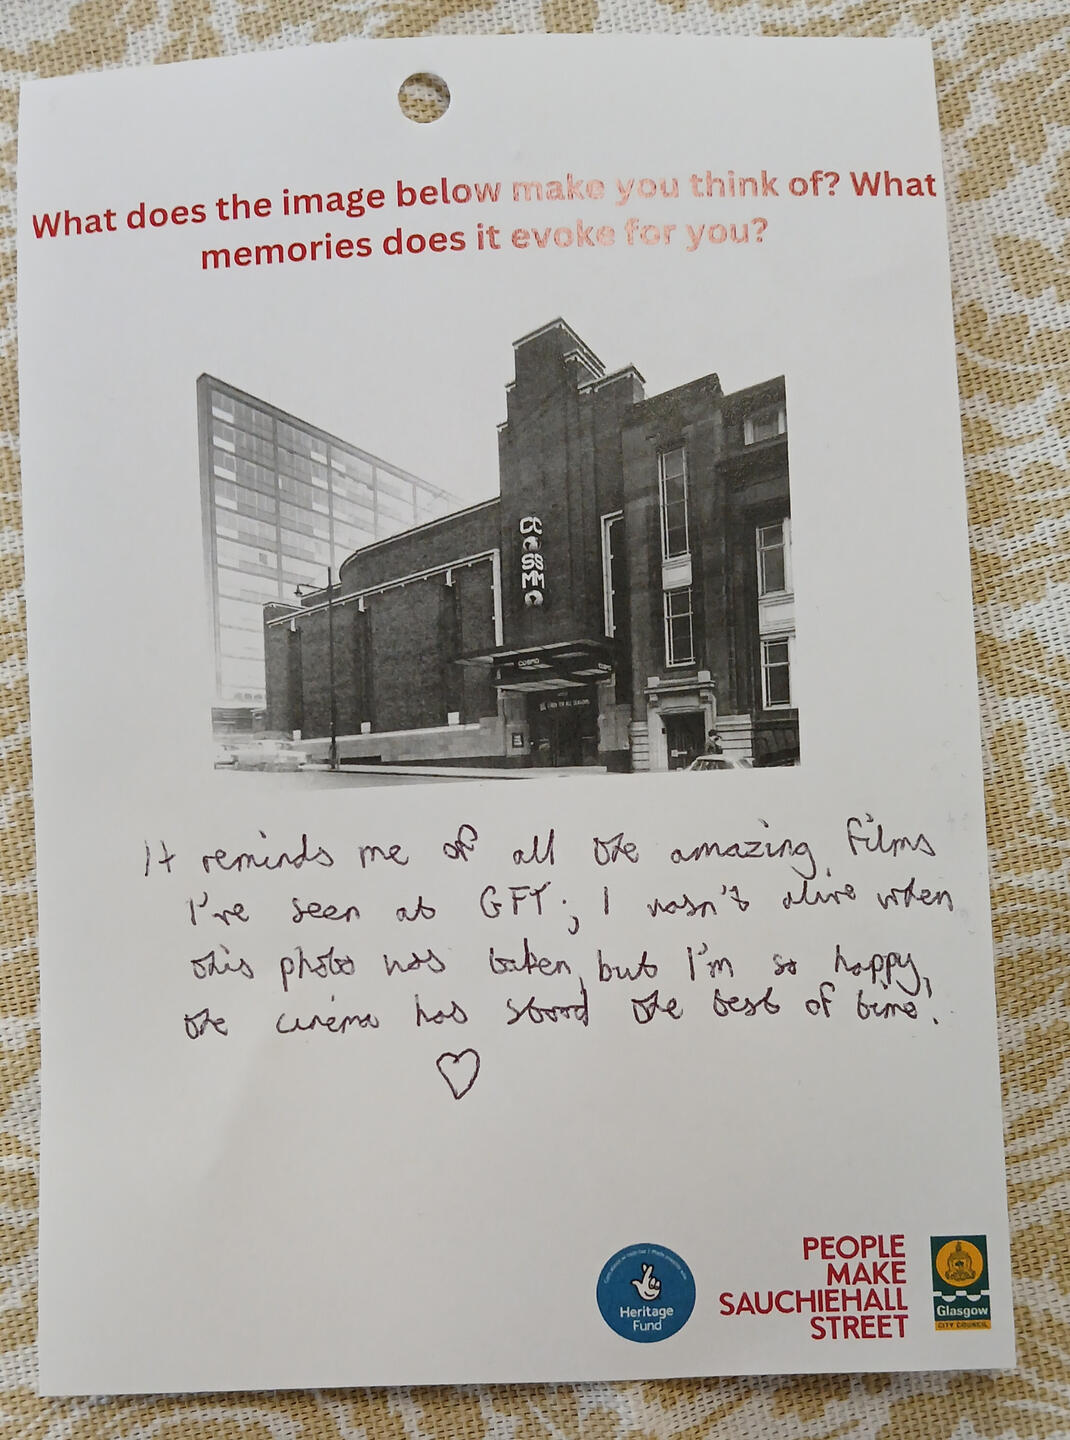 What does the image below make you think of? What
memories does it evoke for you?
COSMO
COSMO
It reminds me of all the amazing films
I've seen at GFT; I wasn't alive when
this photo was taken, but I'm so happy
the cinema has stood the test of time!
Heritage
Fund
PEOPLE
MAKE
SAUCHIEHALL
STREET
Glasgow
CITY COUNCIL